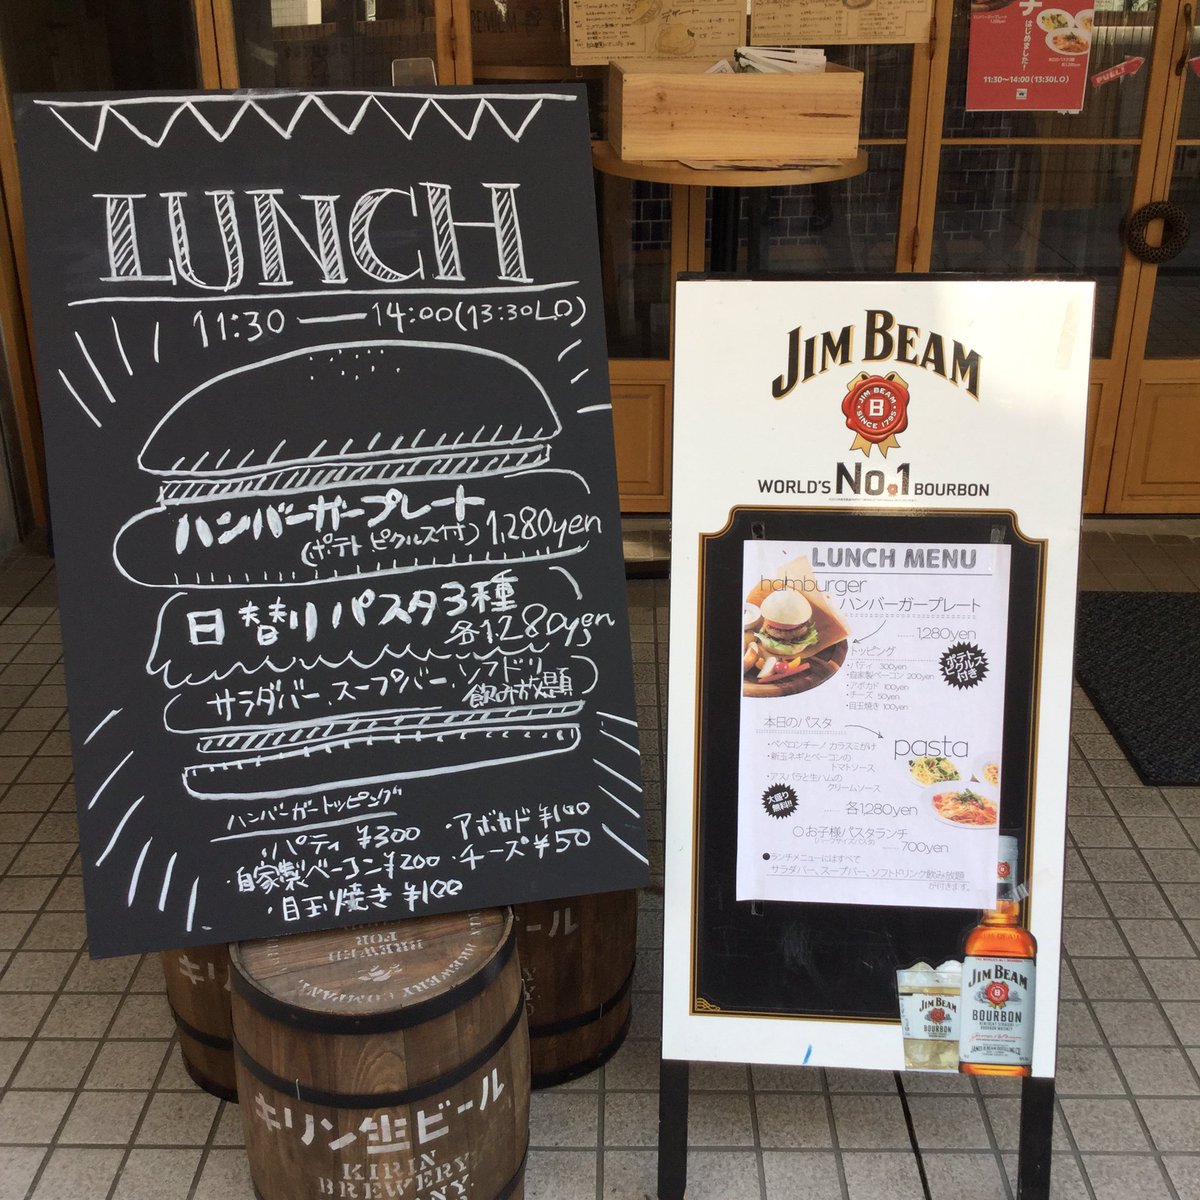 LUNCH
11:30 — 14:00(13:30LO)
ハンバーガープレート
(ポテト ピクルス付) 1,280yen
日替りパスタ3種
各1,280yen
サラダバー、スープバー、ソフドリ
飲み放題
ハンバーガートッピング
・パティ ¥300
・自家製ベーコン¥200
・目玉焼き ¥100
・アボカド ¥100
・チーズ ¥50
キリン生ビール
KIRIN
BREWERY
はじめました!
11:30〜14:00(13:30LO)
PULL!
JIM BEAM
JIM BEAM
B
SINCE 1795
WORLD'S No.1 BOURBON
LUNCH MENU
hamburger
ハンバーガープレート
1,280yen
ポテト
ピクルス
付き
トッピング
・パティ 300yen
・自家製ベーコン 200yen
・アボカド 100yen
・チーズ 50yen
・目玉焼き 100yen
本日のパスタ
pasta
・ペペロンチーノ カラスミがけ
・新玉ネギとベーコンの
トマトソース
・アスパラと生ハムの
クリームソース
大盛り
無料!!
各1,280yen
○お子様パスタランチ
(ハーフサイズパスタ)
700yen
●ランチメニューにはすべて
サラダバー、スープバー、ソフトドリンク飲み放題
が付きます。
JIM BEAM
BOURBON
JIM BEAM
BOURBON
KENTUCKY STRAIGHT
BOURBON WHISKEY